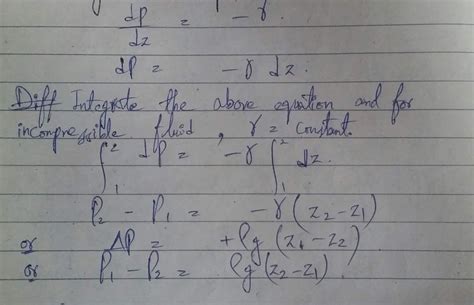 dp/dz = - γ
dP = - γ dz.
Diff Integrate the above equation and for
incompressible fluid, γ = constant.
∫₁² dP = - γ ∫₁² dz.
P₂ - P₁ = - γ (z₂ - z₁)
or ΔP = + ρg (z₁ - z₂)
or P₁ - P₂ = ρg (z₂ - z₁).